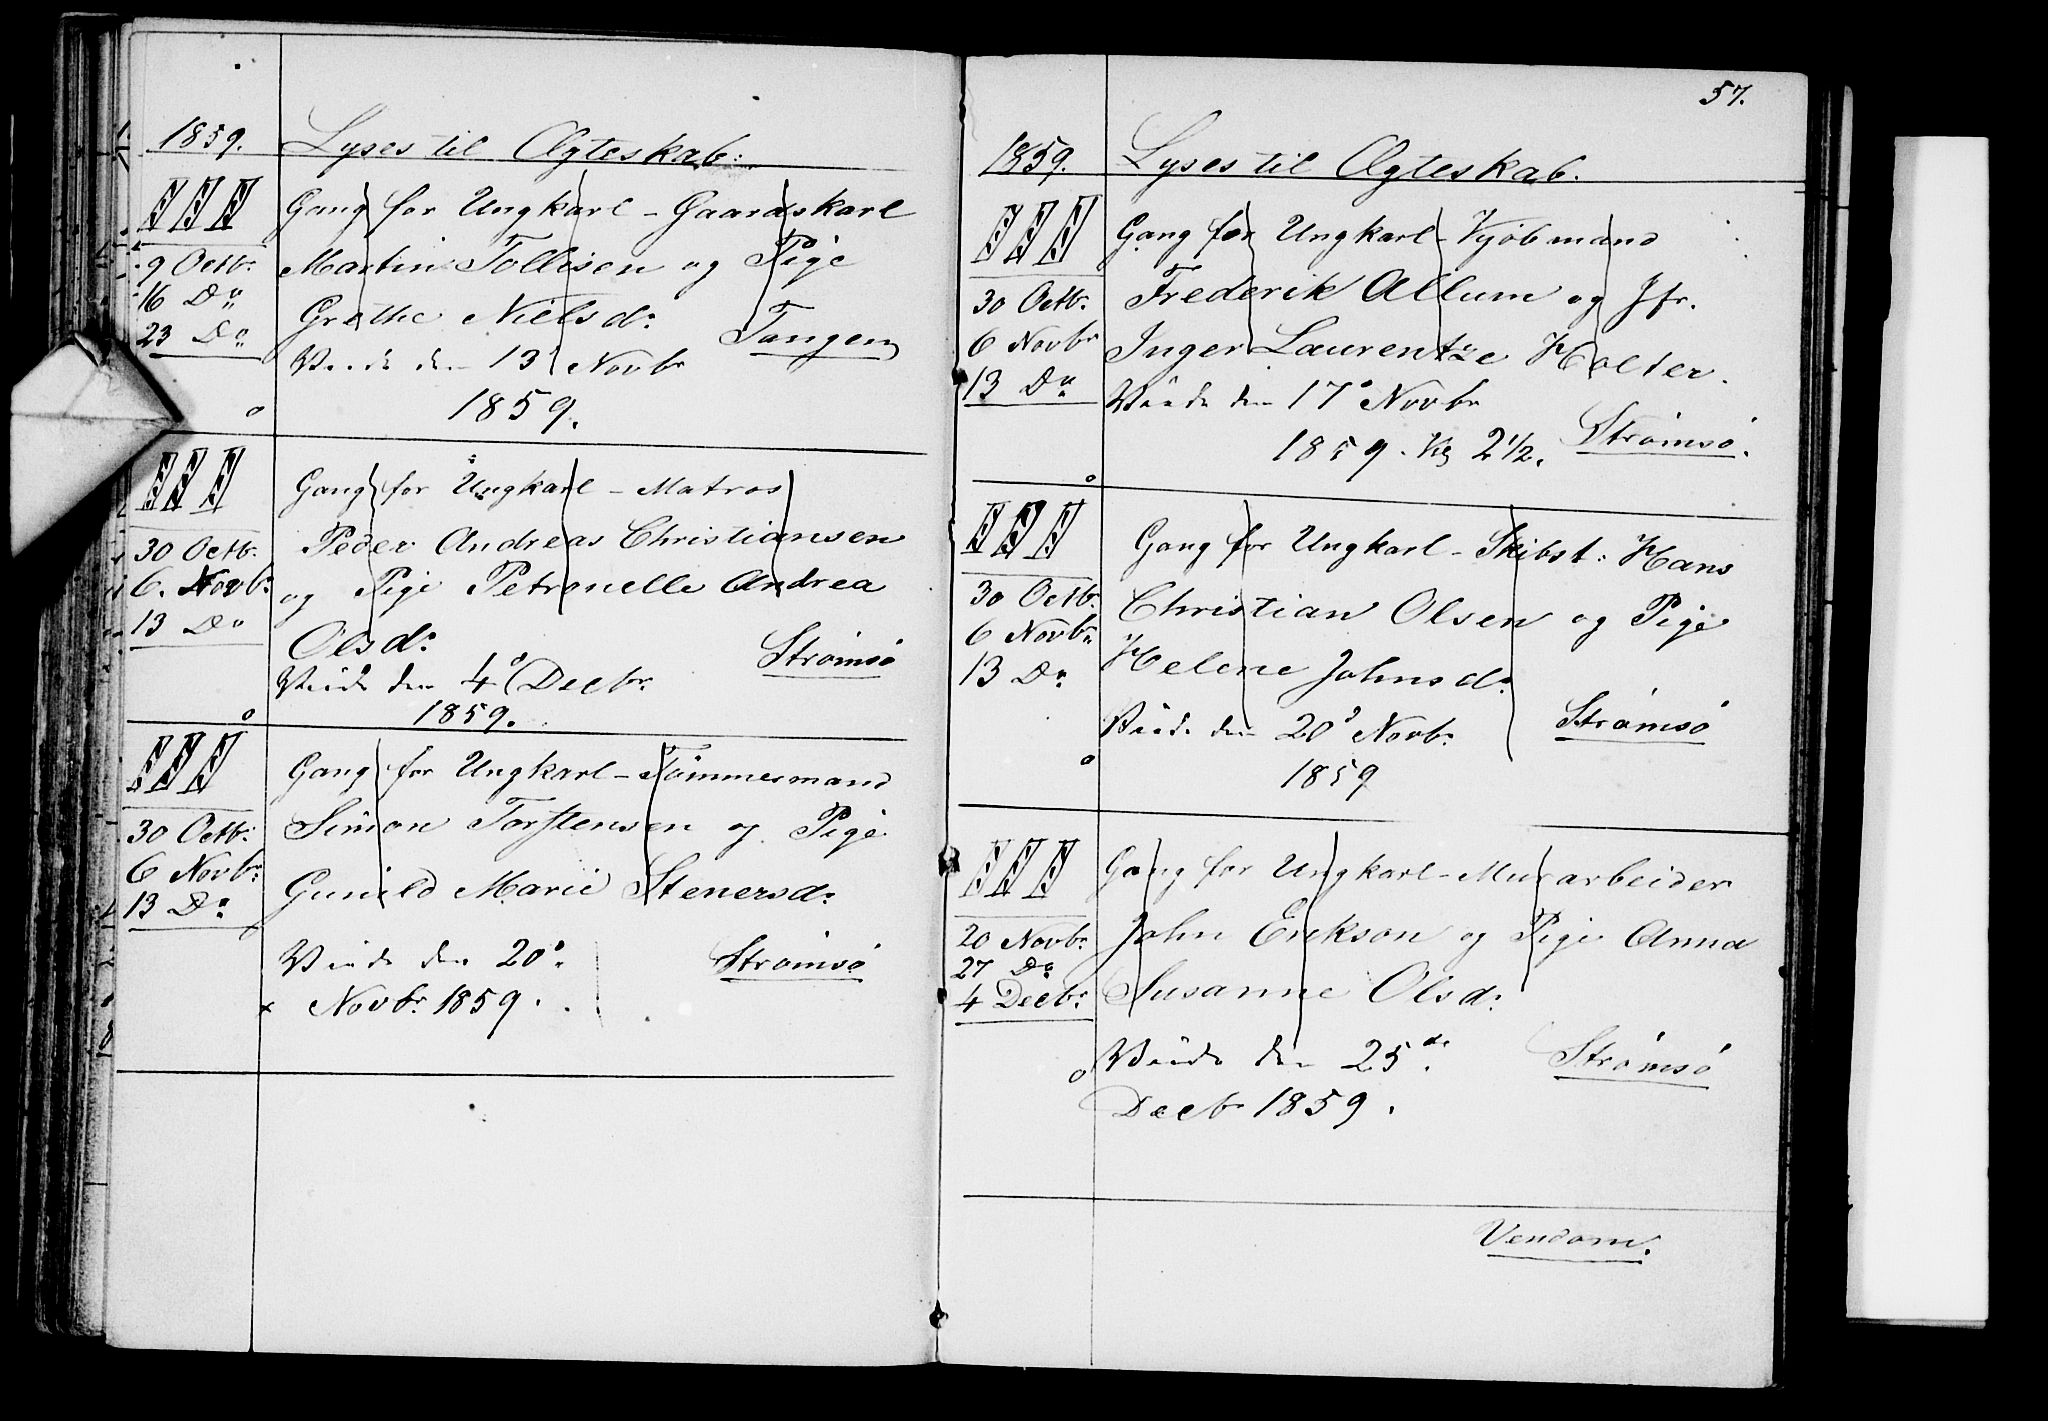 1859. Lyses til Ægteskab:
III Gang for Ungkarl - Gaardskarl
9 Octbr. Martin Tollesen og Pige
16 Do
Grethe Nielsd. Tangen
23 Do
Viede den 13d Novbr
1859.
III Gang for Ungkarl - Matros
30 Octbr. Peder Andreas Christiansen
6. Novbr. og Pige Petronelle Andrea
13 Do
Olsd. Strømsø
Viede den 4d Decbr.
1859.
III Gang for Ungkarl - Tømmermand
30 Octbr. Simon Torstensen og Pige
6 Novbr. Gunild Marie Stenersd.
13 Do
Viede den 20d Strømsø
x Novbr. 1859.
57.
1859. Lyses til Ægteskab.
III Gang for Ungkarl - Kjøbmand
30 Octbr. Frederik Allum og Jfr.
6 Novbr Inger Laurentze Holter.
13 Do Viede den 17d Novbr
1859. Kl 2½. Strømsø.
III Gang for Ungkarl - Skibst: Hans
30 Octbr. Christian Olsen og Pige
6 Novbr. Helene Johnsd.
13 Do
Viede den 20d Novbr. Strømsø
1859
III Gang for Ungkarl - Murarbeider
20 Novbr. John Erikson og Pige Anna
27 Do
4 Decbr. Susanne Olsd.
Viede den 25de Strømsø
Decbr 1859.
Vendom.